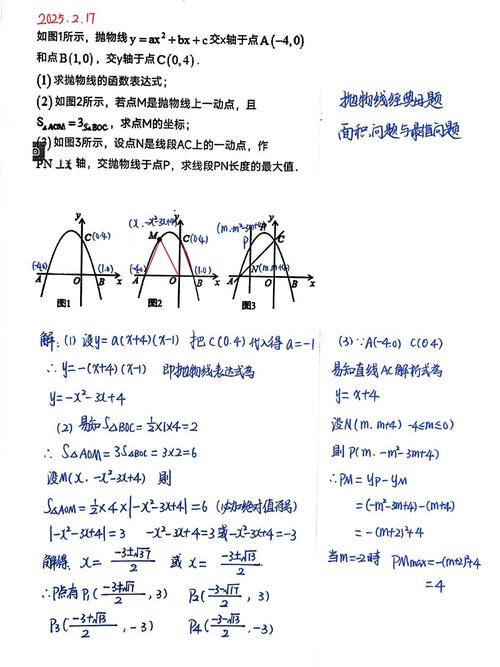 2025.2.17
如图1所示，抛物线y=ax²+bx+c交x轴于点A(-4,0)
和点B(1,0)，交y轴于点C(0,4).
(1)求抛物线的函数表达式；
(2)如图2所示，若点M是抛物线上一动点，且
S△AOM=3S△BOC，求点M的坐标；
(3)如图3所示，设点N是线段AC上的一动点，作
PN⊥x轴，交抛物线于点P，求线段PN长度的最大值.
抛物线经典母题
面积问题与最值问题
y
C(0.4)
(-4.0)
(1.0)
A
O
B
x
图1
(x.-x²-3x+4)
y
M
C(0.4)
(-4.0)
(1.0)
A
O
B
x
图2
(m.-m²-3m+4)
y
P
C
N(m.m+4)
A
O
B
x
图3
解：(1) 设y=a(x+4)(x-1) 把C(0.4)代入得a=-1
∴y=-(x+4)(x-1) 即抛物线表达式为
y=-x²-3x+4
(2) 易知S△BOC=½×1×4=2
∴S△AOM=3S△BOC=3×2=6
设M(x.-x²-3x+4) 则
S△AOM=½×4×|-x²-3x+4|=6 (必加绝对值符号)
|-x²-3x+4|=3 -x²-3x+4=3或-x²-3x+4=-3
解得 x=(-3±√37)/2 或x=(-3±√13)/2
∴P点有P₁((-3+√37)/2,3) P₂((-3-√17)/2,3)
P₃((-3+√13)/2,-3) P₄((-3-√13)/2,-3)
(3)∵A(-4.0) C(0.4)
易知直线AC解析式为
y=x+4
设N(m.m+4) -4≤m≤0)
则P(m.-m²-3m+4)
∴PM=yP-yM
=(-m²-3m+4)-(m+4)
=-(m+2)²+4
当m=-2时 PMmax=-(m+2)²+4
=4